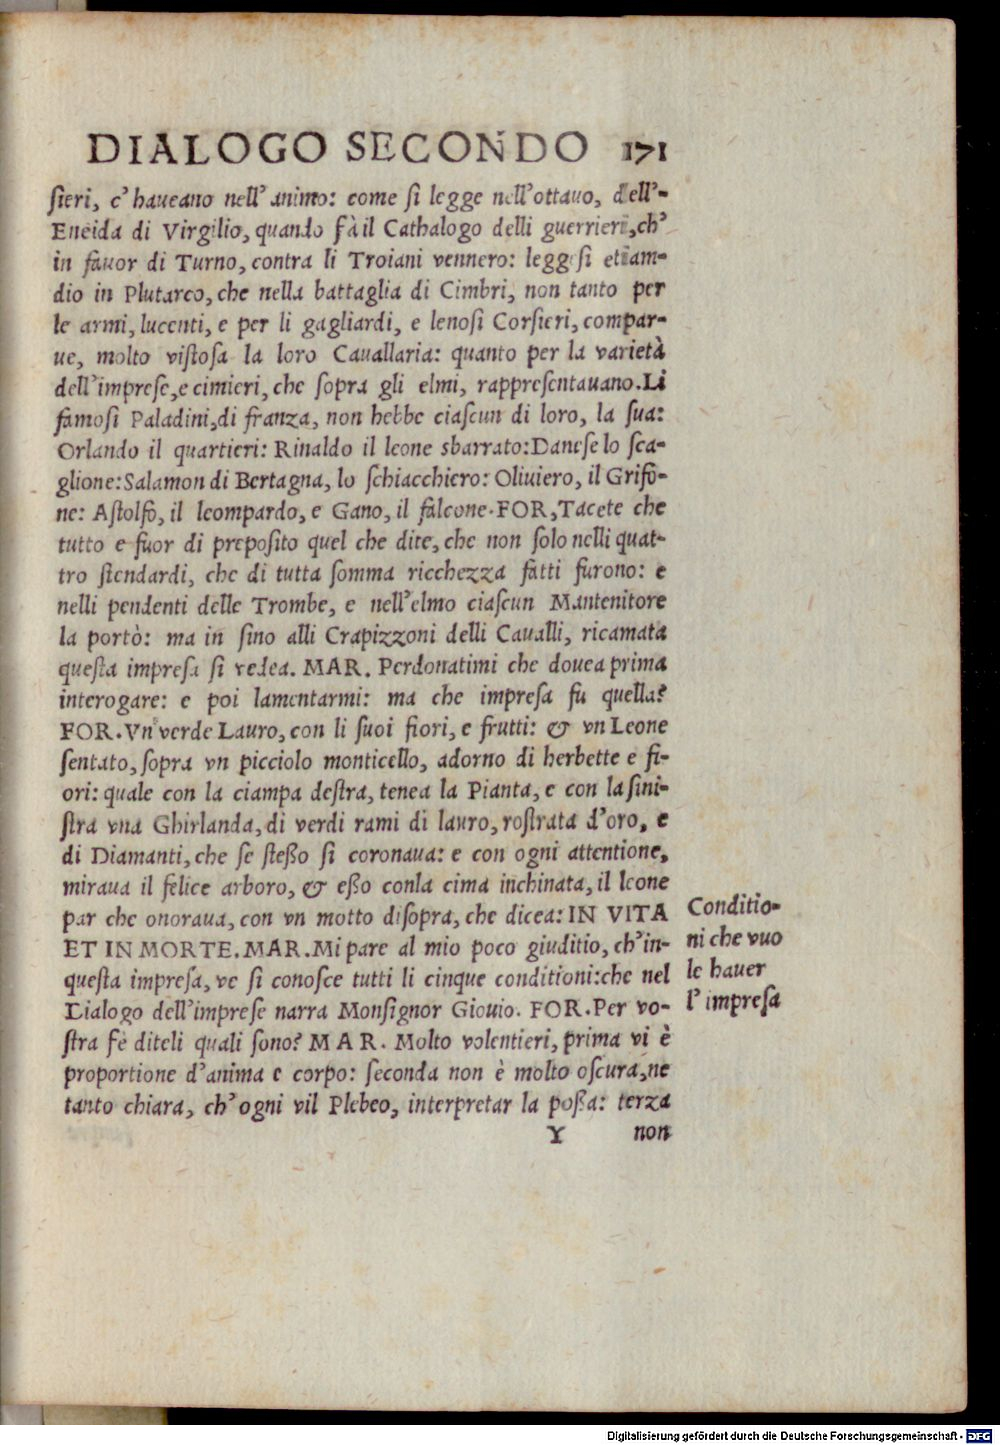 DIALOGO SECONDO 171
ſieri, c'haveano nell'animo: come ſi legge nell'ottauo, dell'-
Eneida di Virgilio, quando fà il Cathalogo delli guerrieri, ch'
in favor di Turno, contra li Troiani vennero: leggeſi etiam-
dio in Plutarco, che nella battaglia di Cimbri, non tanto per
le armi, lucenti, e per li gagliardi, e lenoſi Corſieri, compar-
ue, molto viſtoſa la loro Cauallaria: quanto per la varietà
dell'impreſe, e cimieri, che ſopra gli elmi, rappreſentauano. Li
famoſi Paladini, di franza, non hebbe ciaſcun di loro, la ſua:
Orlando il quartieri: Rinaldo il leone sbarrato: Daneſe lo ſca-
glione: Salamon di Bertagna, lo ſchiacchiero: Oliuiero, il Grifo-
ne: Aſtolfo, il leompardo, e Gano, il falcone. FOR, Tacete che
tutto e fuor di prepoſito quel che dite, che non ſolo nelli quat-
tro ſtendardi, che di tutta ſomma ricchezza fatti furono: e
nelli pendenti delle Trombe, e nell'elmo ciaſcun Mantenitore
la portò: ma in ſino alli Crapizzoni delli Caualli, ricamata
queſta impreſa ſi vedea. MAR. Perdonatimi che douea prima
interogare: e poi lamentarmi: ma che impreſa fu quella?
FOR. Vn verde Lauro, con li ſuoi fiori, e frutti: & vn Leone
ſentato, ſopra vn picciolo monticello, adorno di herbette e fi-
ori: quale con la ciampa deſtra, tenea la Pianta, e con la ſini-
ſtra vna Ghirlanda, di verdi rami di lauro, roſtrata d'oro, e
di Diamanti, che ſe ſteßo ſi coronaua: e con ogni attentione,
miraua il felice arboro, & eßo conla cima inchinata, il leone
par che onoraua, con vn motto diſopra, che dicea: IN VITA
ET IN MORTE. MAR. Mi pare al mio poco giuditio, ch'in-
queſta impreſa, ve ſi conoſce tutti li cinque conditioni: che nel
Dialogo dell'impreſe narra Monſignor Giouio. FOR. Per vo-
ſtra fè diteli quali ſono? MAR. Molto volentieri, prima vi è
proportione d'anima e corpo: ſeconda non è molto oſcura, ne
tanto chiara, ch'ogni vil Plebeo, interpretar la poßa: terza
Y non
Conditio-
ni che vuo
le hauer
l'impreſa
Digitalisierung gefördert durch die Deutsche Forschungsgemeinschaft - DFG